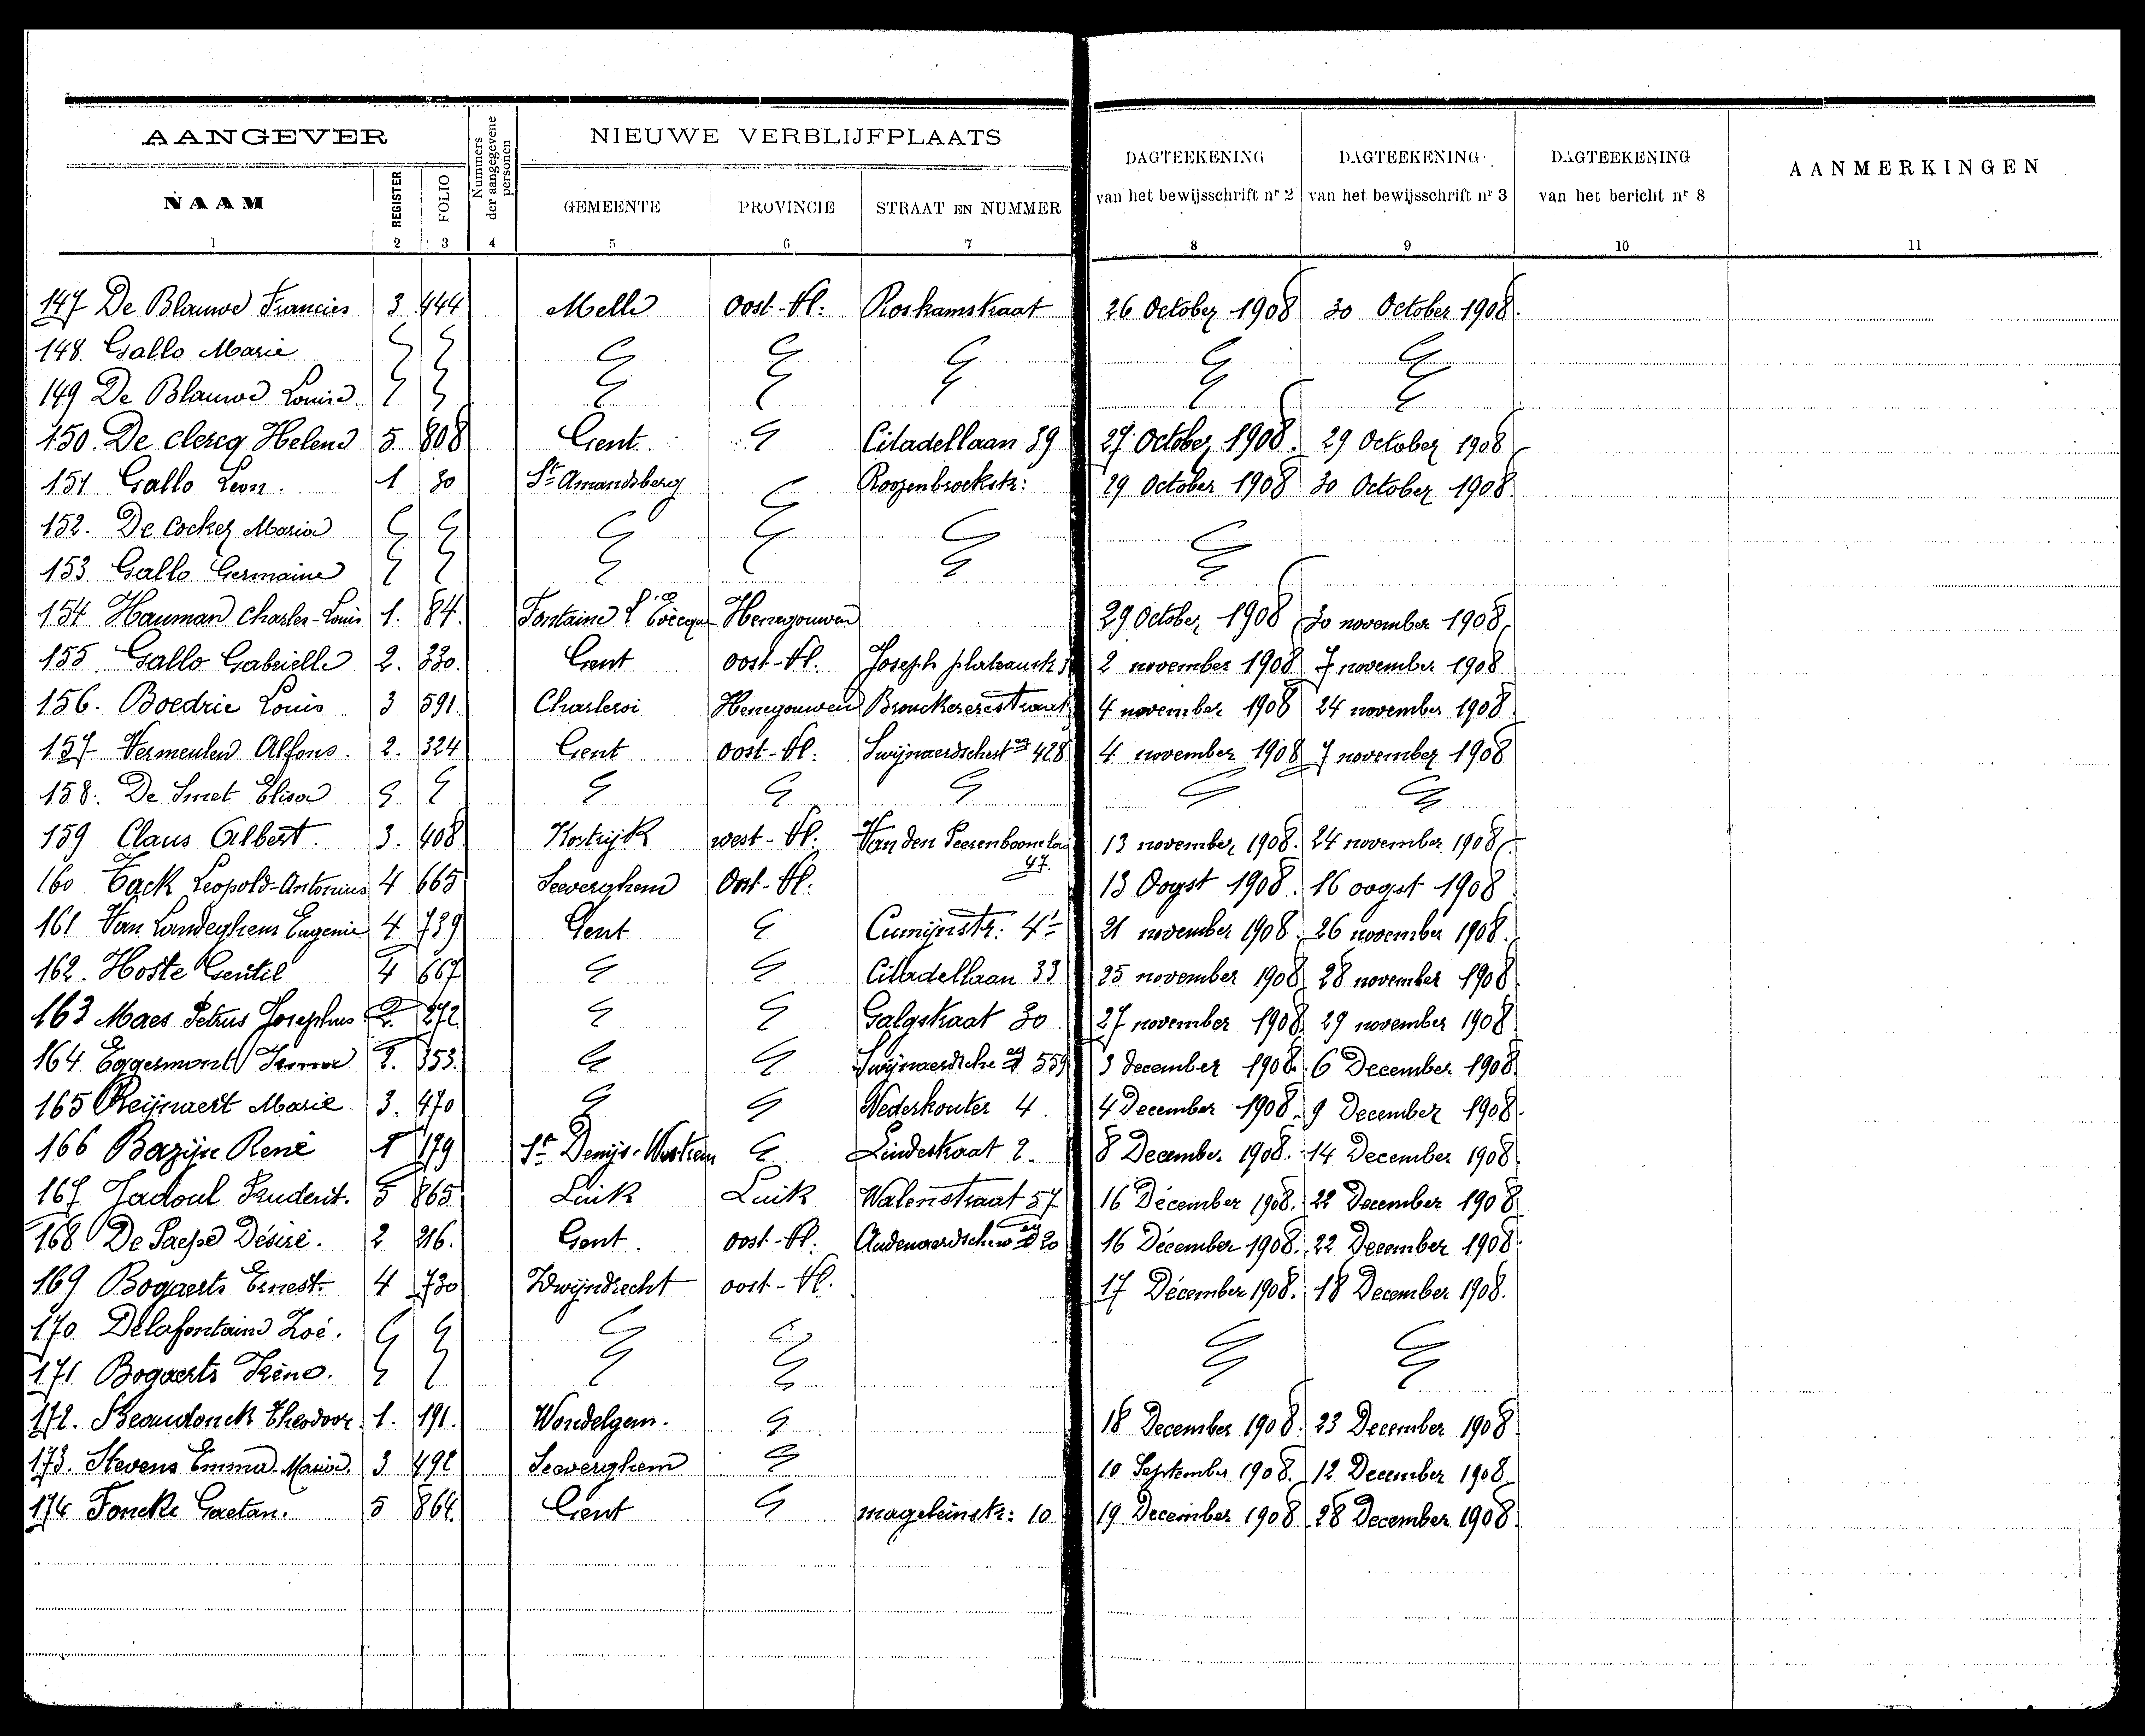 AANGEVER
Nummers der aangegevene personen
NIEUWE VERBLIJFPLAATS
DAGTEEKENING van het bewijsschrift nr 2
DAGTEEKENING van het bewijsschrift nr 3
DAGTEEKENING van het bericht nr 8
AANMERKINGEN
NAAM REGISTER FOLIO GEMEENTE PROVINCIE STRAAT EN NUMMER
1 2 3 4 5 6 7 8 9 10 11
147 De Blauwe Francies 3 444 Melle Oost-Vl: Roskamstraat 26 October 1908 30 October 1908.
148. Gallo Marie
149 De Blauwe Louise
150. De clercq Helene 5 808 Gent Citadellaan 39 27 October 1908. 29 October 1908
151 Gallo Leon. 1 30 St Amandsberg Roozenbroekstr: 29 October 1908 30 October 1908
152. De Cocker Maria
153 Gallo Germaine
154 Hauman Charles-Louis 1. 84. Fontaine l'Evêque Henegouwen 29 October 1908 30 november 1908.
155 Gallo Gabrielle 2. 330. Gent Oost-Vl. Joseph 2 november 1908 7 november 1908
156. Boedrie Louis 3 591. Charleroi Henegouwen Brouckerestraat 4 november 1908 24 november 1908
157 Vermeulen Alfons. 2. 324 Gent Oost-Vl. Swijnaerdschest 428 4 november 1908 7 november 1908
158. De Smet Elisa
159 Claus Albert. 3. 408 Kortrijk west-Vl. Van den Peerenboomlaa 47. 13 november 1908. 24 november 1908
160 Tack Leopold-Antonius 4 665 Seeverghem Oost-Vl. 13 Oogst 1908. 16 oogst 1908
161 Van Landeghem Eugenie 4 739 Gent Cumijnstr: 41 21 november 1908. 26 november 1908.
162. Hoste Gentil 4 667 Citadellaan 33 25 november 1908 28 november 1908
163 Maes Petrus Josephus 2. 272 Galgstraat 30 27 november 1908 29 november 1908
164 Eggermont Irma 2. 353. Swijnaerdsche 559 3 december 1908. 6 December 1908
165 Reijnaert Marie. 3. 470 Nederkouter 4. 4 December 1908. 9 December 1908.
166 Bazijn René 1 179 St Denijs-Westrem Lindestraat 2. 8 December 1908. 14 December 1908
167 Jadoul Prudent. 5 865 Luik Luik Walenstraat 57 16 Décember 1908. 22 December 1908
168 De Paepe Désiré. 2 216. Gent. Oost-Vl. Audenaerdsche 20 16 Décember 1908. 22 December 1908
169 Bogaerts Ernest. 4 730 Zwijndrecht oost-Vl. 17 Décember 1908. 18 December 1908.
170. Delafontaine Zoé.
171 Bogaerts Irène.
172. Beaudonck Theodoor. 1. 191. Wondelgem. 18 December 1908. 23 December 1908
173. Stevens Emma-Maria. 3 492 Seeverghem 10 September 1908. 12 December 1908
174 Foncke Gaetan. 5 864. Gent mageleinstr: 10 19 December 1908 28 December 1908.